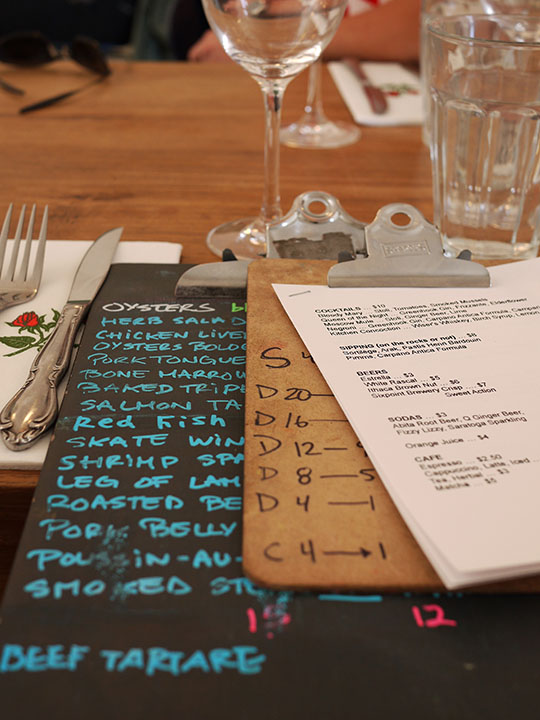 OYSTERS
HERB SALAD
CHICKEN LIVE
OYSTERS BOLO
PORK TONGUE
BONE MARROW
BAKED TRIPE
SALMON TA
RED FISH
SKATE WIN
SHRIMP SPA
LEG OF LAM
ROASTED BE
PORK BELLY
IN-AU-
SMOKED ST
12
BEEF TARTARE
S 4
D 20
D 16
D 12
D 8 5
D 4 1
C 4 1
COCKTAILS $10
Bloody Mary Stoli, Tomatoes, Smoked Mussels
Queen of the Night Greenhook Gin, Frizzante, Elderflower
Moscow Mule Rock, Ginger Beer, Lime
Negroni Greenhook Gin, Carpano Antica Formula, Campa
Kitchen Conviction Wiser's Whiskey, Birch Syrup, Lemon
SIPPING (on the rocks or not) $8
Sortilège, Arak, Pastis Henri Bardouin
Punt e Mes, Carpano Antica Formula
BEERS
Estrella $3
White Rascal $5
Ithaca Brown Nut $6
Sixpoint Brewery Crisp $7
Sweet Action
SODAS $3
Abita Root Beer, Q Ginger Beer,
Fizzy Lizzy, Saratoga Sparkling
Orange Juice $4
CAFE
Espresso $2.50
Cappuccino, Latte, Iced
Tea, Herbal $3
Matcha $5